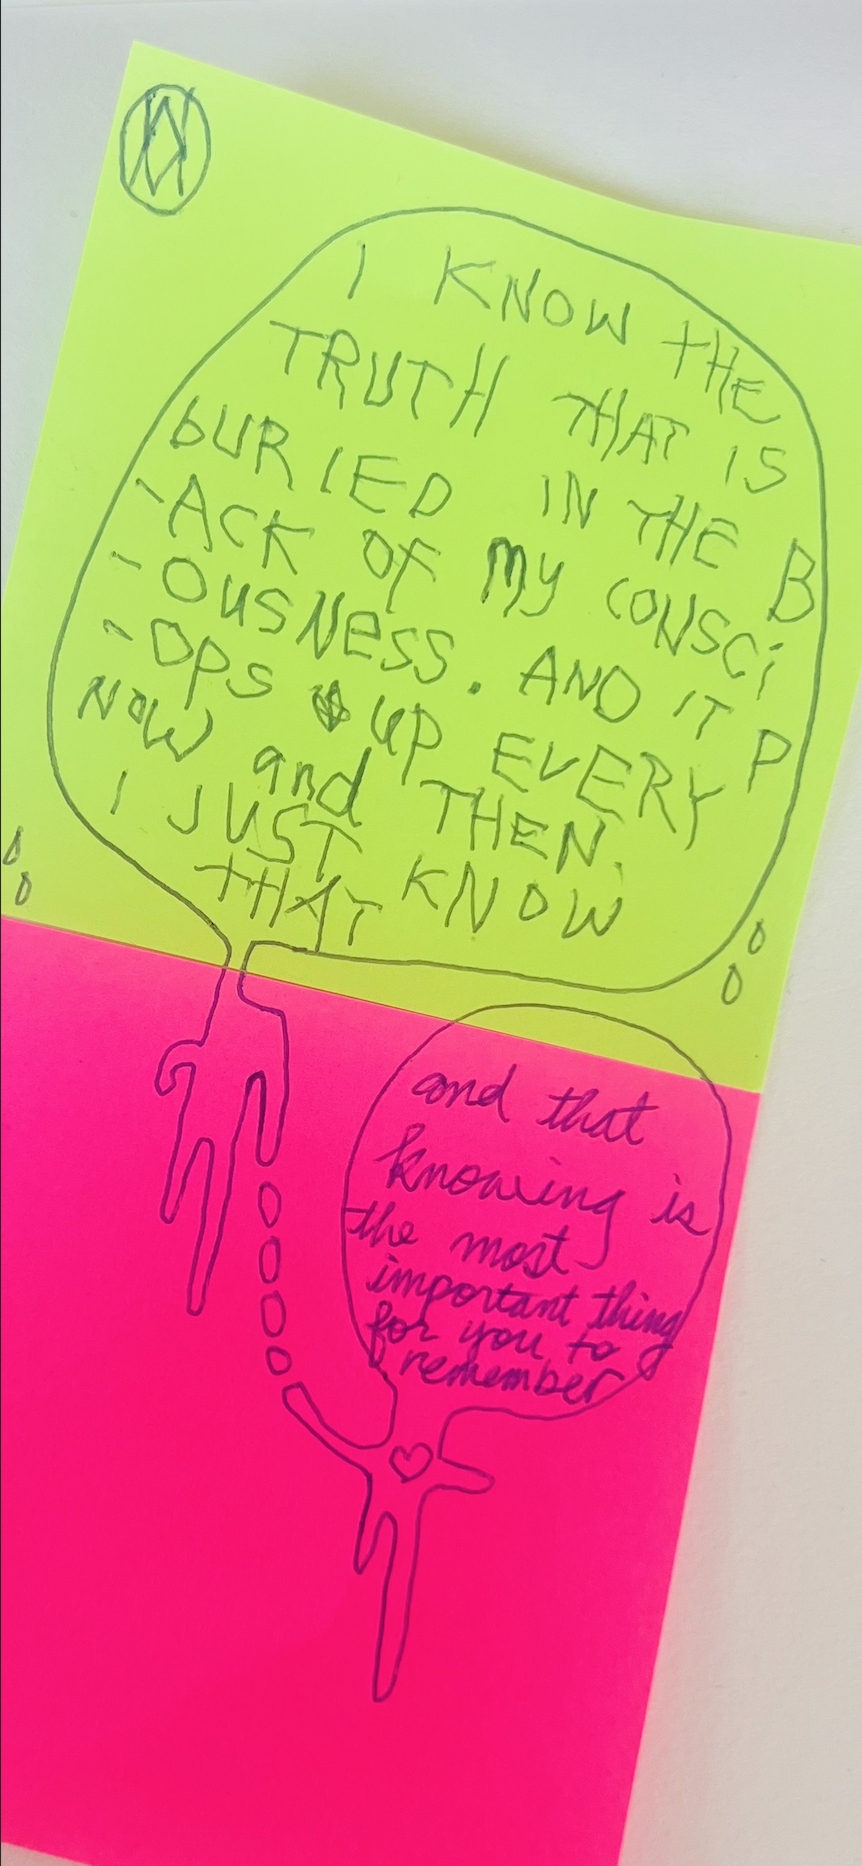 I KNOW THE
TRUTH THAT IS
bURIED IN THE B
-ACK OF MY CONSCi
-OUSNeSS. AND IT P
-OPS UP EVERY
NOW and THEN.
I JUST KNOW
THAT
and that
knowing is
the most
important thing
for you to
remember